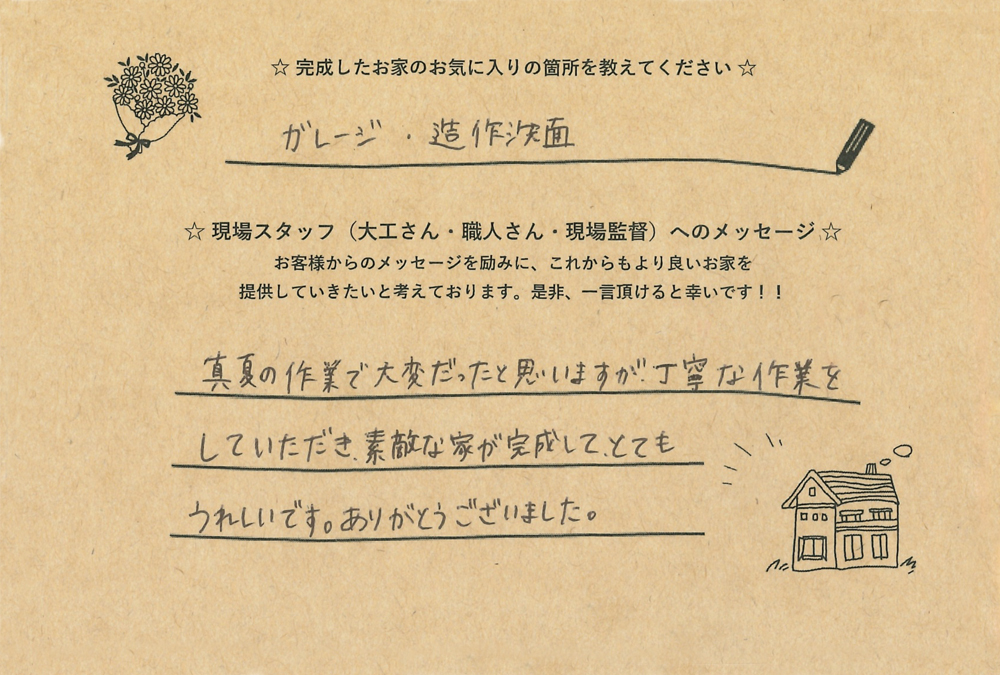 ☆ 完成したお家のお気に入りの箇所を教えてください ☆
ガレージ ・ 造作洗面
☆ 現場スタッフ（大工さん・職人さん・現場監督）へのメッセージ ☆
お客様からのメッセージを励みに、これからもより良いお家を
提供していきたいと考えております。是非、一言頂けると幸いです！！
真夏の作業で大変だったと思いますが、丁寧な作業を
していただき、素敵な家が完成して、とても
うれしいです。ありがとうございました。